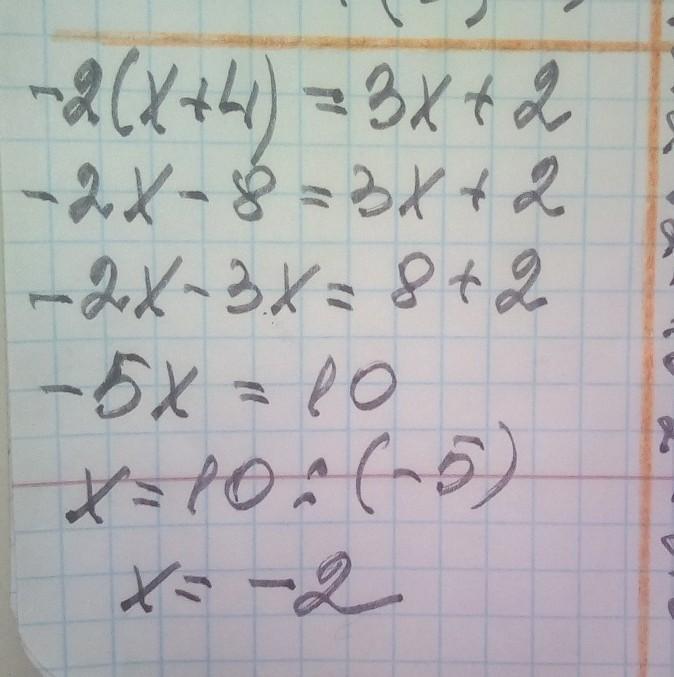 -2(x+4) = 3x + 2
-2x - 8 = 3x + 2
-2x - 3x = 8 + 2
-5x = 10
x = 10 : (-5)
x = -2